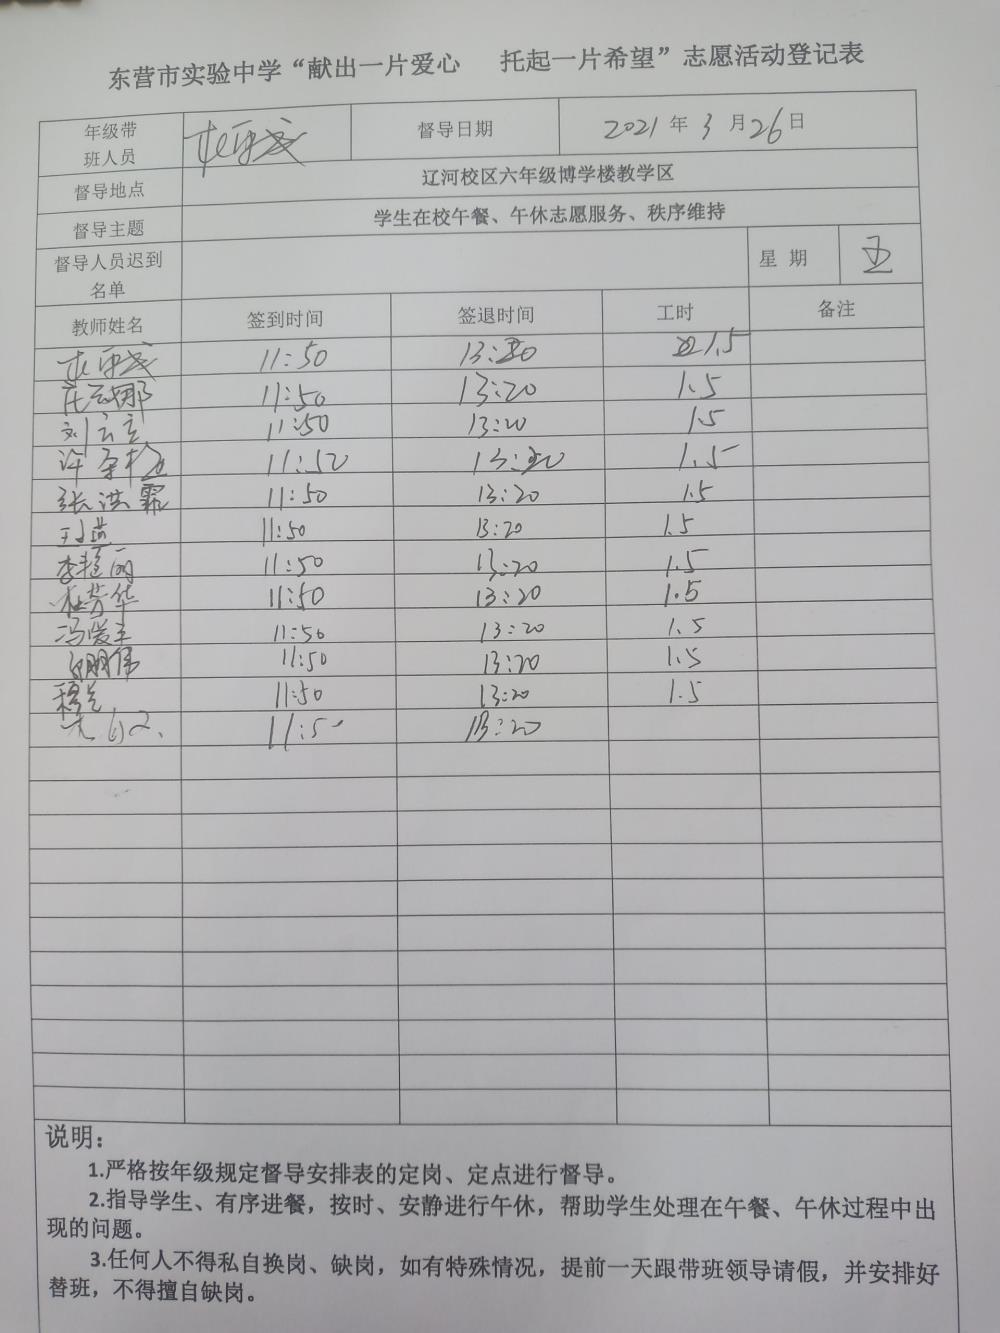 东营市实验中学“献出一片爱心 托起一片希望”志愿活动登记表
年级带班人员 督导日期 2021年3月26日
督导地点 辽河校区六年级博学楼教学区
督导主题 学生在校午餐、午休志愿服务、秩序维持
督导人员迟到名单 星期 五
教师姓名 签到时间 签退时间 工时 备注
11:50 13:20 1.5
11:50 13:20 1.5
11:50 13:20 1.5
11:50 13:20 1.5
张洪霏 11:50 13:20 1.5
11:50 13:20 1.5
李艳丽 11:50 13:20 1.5
杜芳华 11:50 13:20 1.5
冯爱玉 11:50 13:20 1.5
11:50 13:20 1.5
11:50 13:20 1.5
13:20
说明：
1.严格按年级规定督导安排表的定岗、定点进行督导。
2.指导学生、有序进餐，按时、安静进行午休，帮助学生处理在午餐、午休过程中出
现的问题。
3.任何人不得私自换岗、缺岗，如有特殊情况，提前一天跟带班领导请假，并安排好
替班，不得擅自缺岗。